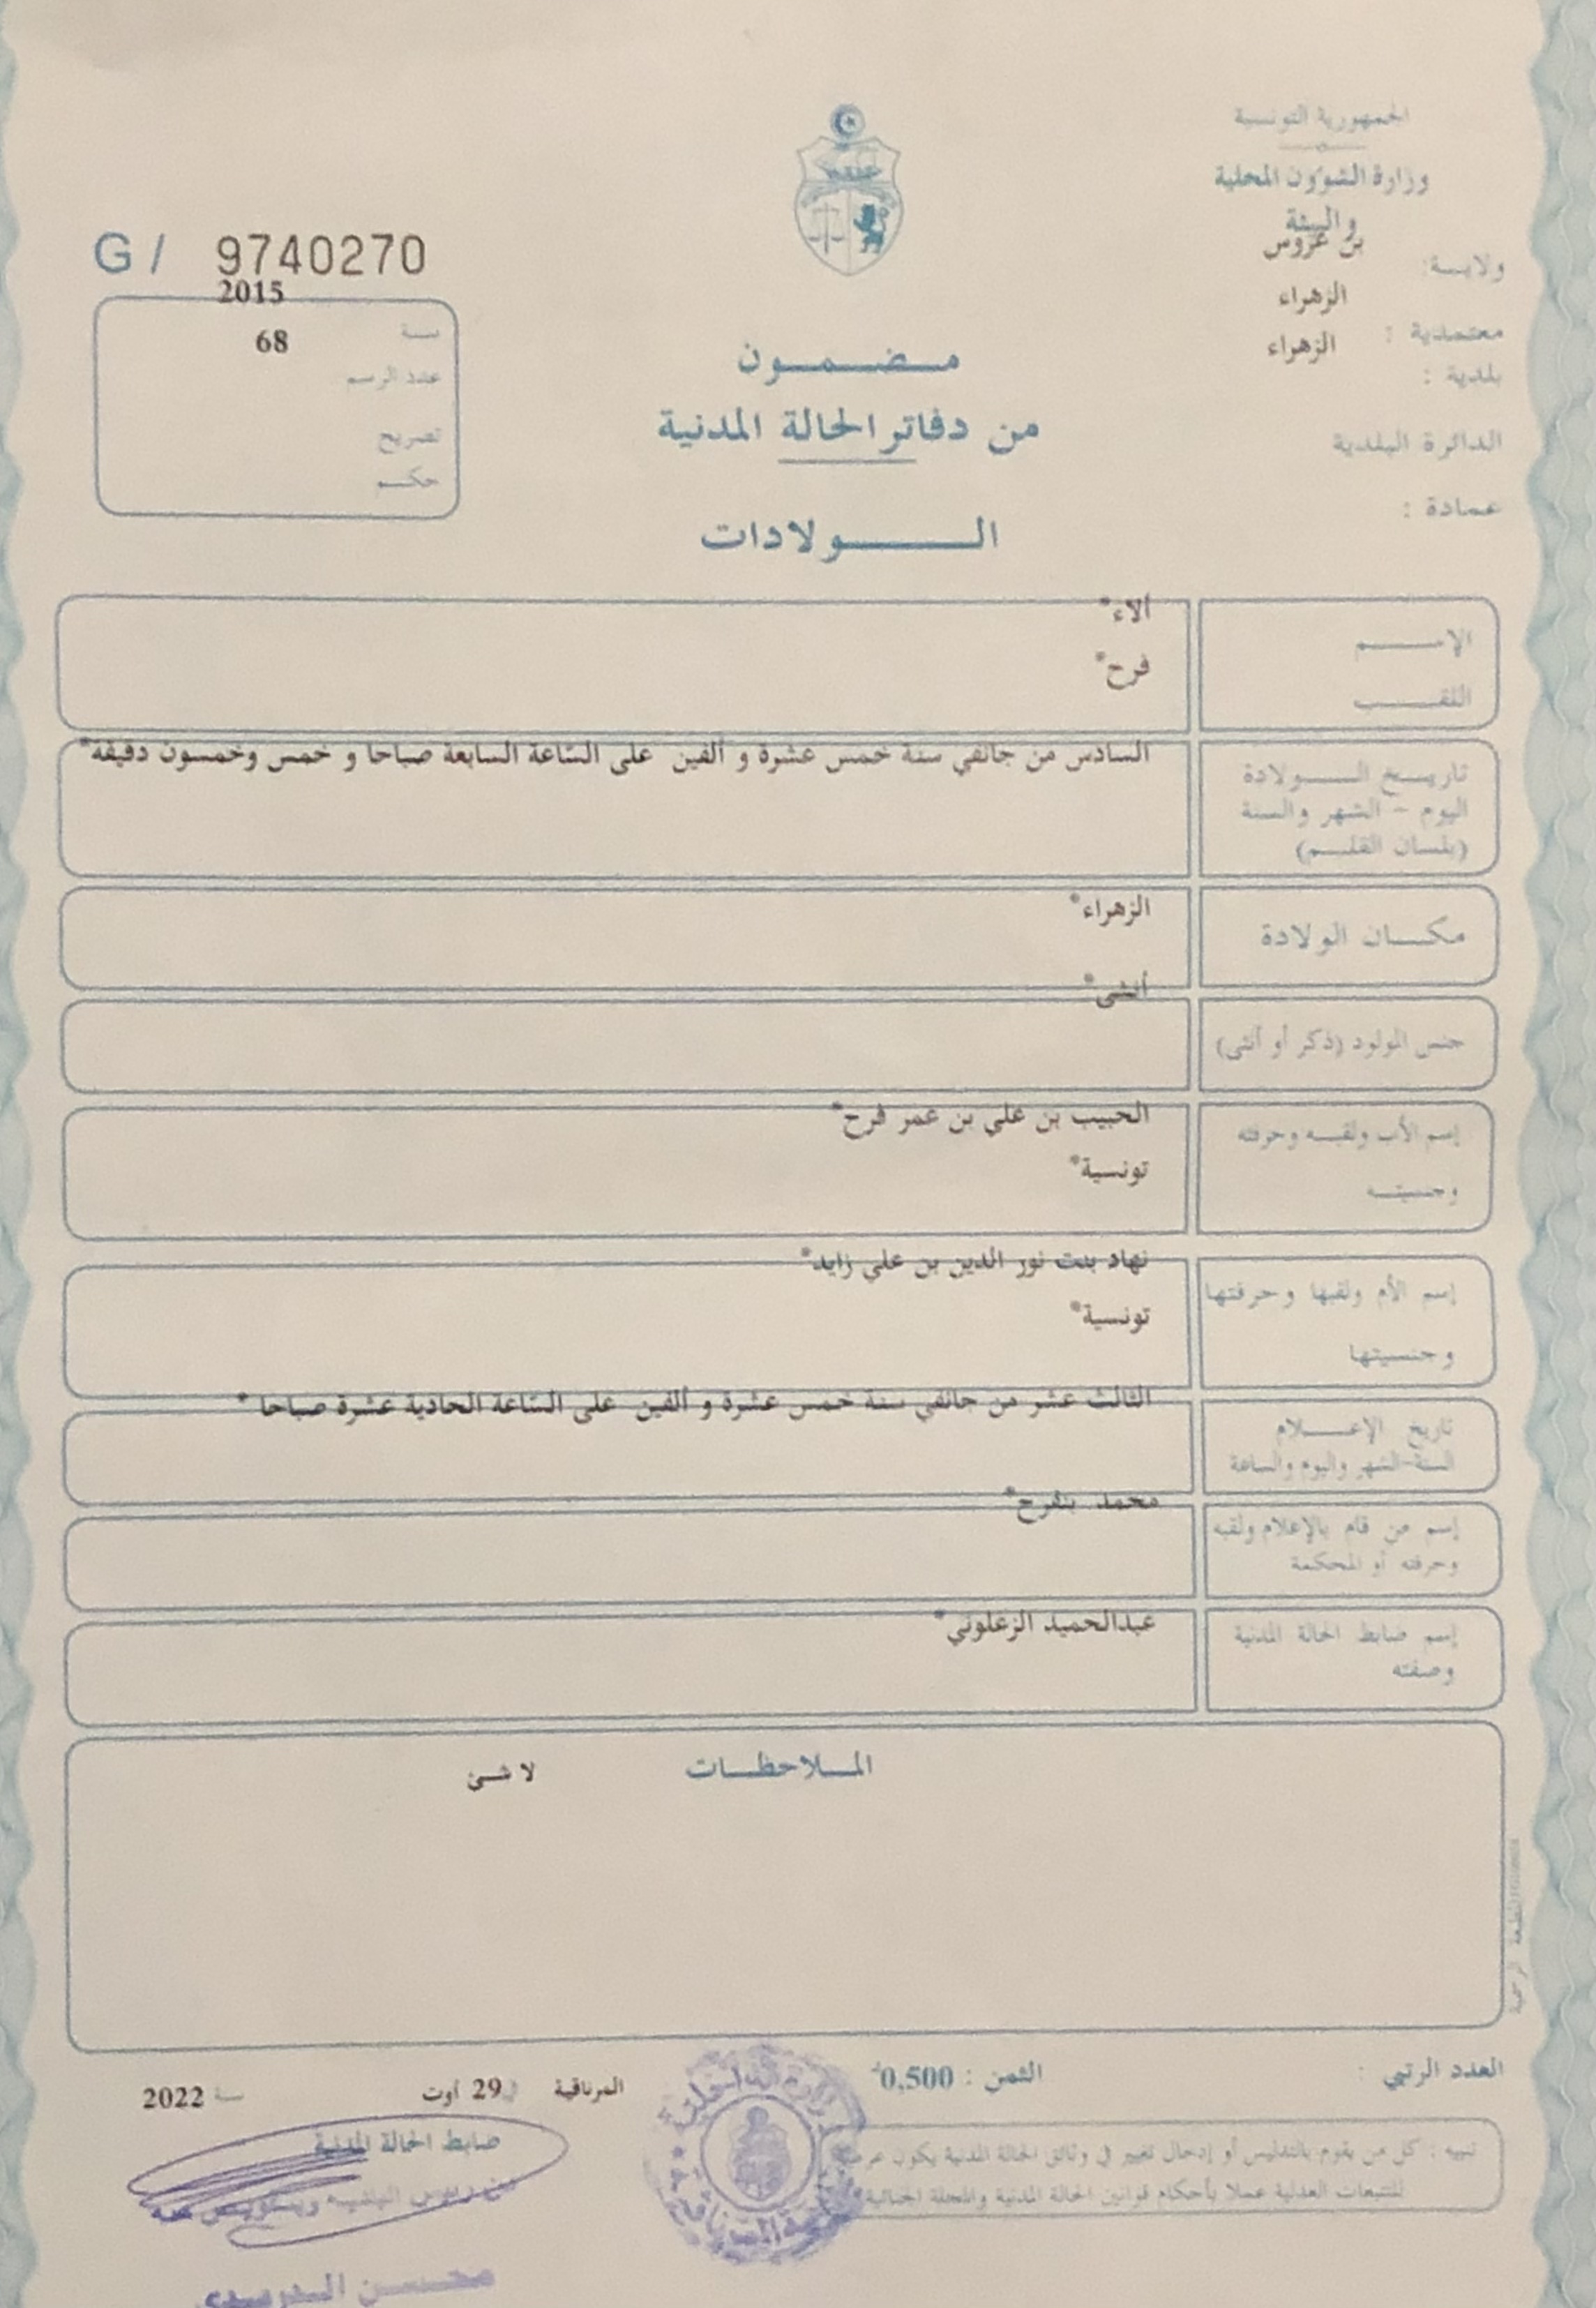 الجمهورية التونسية
وزارة الشؤون المحلية
والبيئة
ولايـة: بن عروس
معتمدية : الزهراء
بلدية : الزهراء
الدائرة البلدية
عمادة :
G/ 9740270
سنة 2015
عدد الرسم 68
تصريح
حكـم
مـضـمـون
من دفاتر الحالة المدنية
الـولادات
الإسـم ألاء*
اللقـب فرح*
تاريـخ الـولادة السادس من جانفي سنة خمس عشرة و ألفين على السّاعة السابعة صباحا و خمس وخمسون دقيقة*
اليوم - الشهر والسنة
(بلسان القلـم)
مكـان الولادة الزهراء*
جنس المولود (ذكر أو أنثى) أنثى*
إسم الأب ولقبـه وحرفته الحبيب بن علي بن عمر فرح*
وجنسيتـه تونسية*
إسم الأم ولقبها وحرفتها نهاد بنت نور الدين بن علي زايد*
وجنسيتها تونسية*
تاريخ الإعـلام الثالث عشر من جانفي سنة خمس عشرة و ألفين على السّاعة الحادية عشرة صباحا *
السنة-الشهر واليوم والساعة
إسم من قام بالإعلام ولقبه محمد بنفرح*
وحرفته أو المحكمة
إسم ضابط الحالة المدنية عبدالحميد الزعلوني*
وصفته
المـلاحظـات لا شـئ
العدد الرتبي :
الثمن : 0,500د
المرناقية في 29 أوت سنة 2022
ضابط الحالة المدنية
تنبيه : كل من يقوم بالتدليس أو إدخال تغيير في وثائق الحالة المدنية يكون عرضة
للتتبعات العدلية عملا بأحكام قوانين الحالة المدنية والمجلة الجنائية
محـسـن